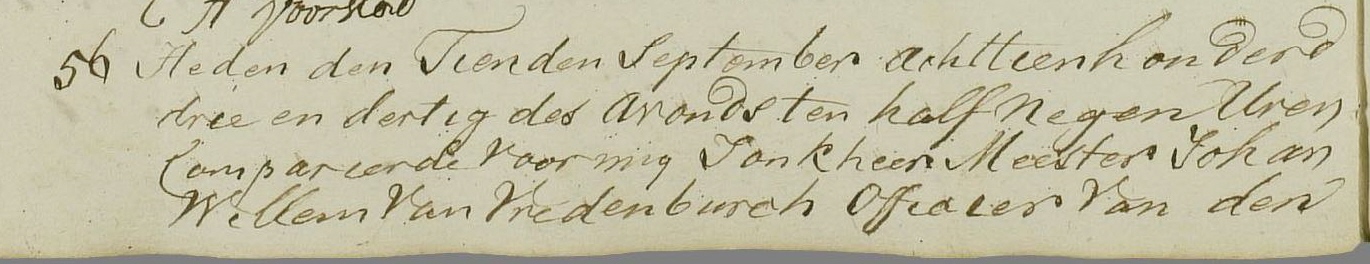 A Voorstad
56 Heden den Tienden September achttienhonderd
drie en dertig des avonds ten half negen Uren
Compareerde voor mij Jonkheer Meester Johan
Willem Van Vredenburch Officier Van den